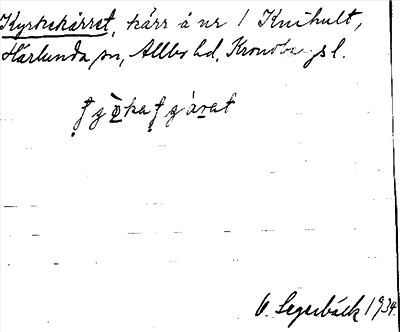 Kyrkekärret, kärr å nr 1 Knihult,
Härlunda sn, Allbo hd, Kronobergs l.
V. Segerbäck 1934.